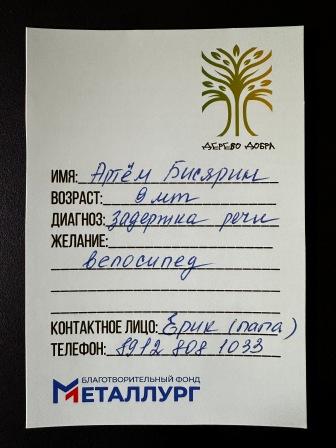 ДЕРЕВО ДОБРА
ИМЯ: Артём Бисярин
ВОЗРАСТ: 9 лет
ДИАГНОЗ: задержка речи
ЖЕЛАНИЕ:
велосипед
КОНТАКТНОЕ ЛИЦО: Ерик (папа)
ТЕЛЕФОН: 8912 808 1033
БЛАГОТВОРИТЕЛЬНЫЙ ФОНД
МЕТАЛЛУРГ